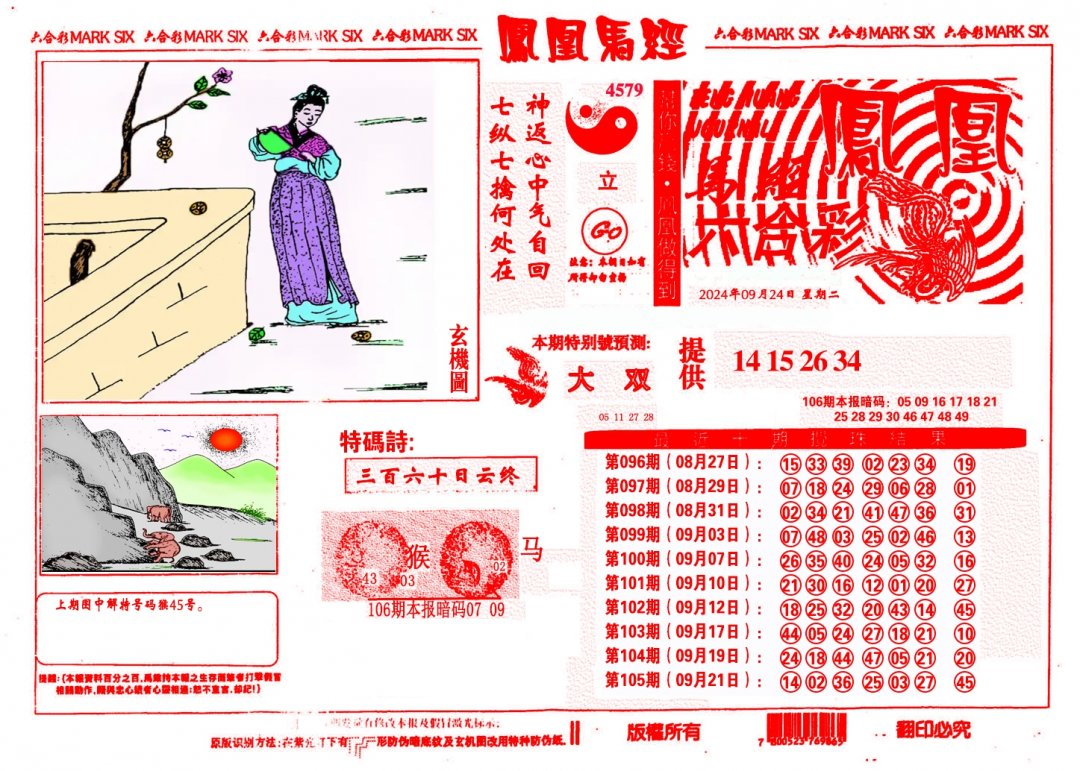 六合彩MARK SIX 六合彩MARK SIX 六合彩MARK SIX 六合彩MARK SIX
鳳凰馬經
六合彩MARK SIX 六合彩MARK SIX 六合彩MARK SIX
神返心中气自回
七纵七擒何处在
4579
立
GO
所得
鳳凰做得到
鳳凰
六合彩
2024年09月24日 星期二
玄機圖
本期特别號預測:
大 双
提供
14 15 26 34
106期本报暗码: 05 09 16 17 18 21
25 28 29 30 46 47 48 49
05 11 27 28
最近十期搅珠结果
第096期(08月27日): 15 33 39 02 23 34 19
第097期(08月29日): 07 18 24 29 06 28 01
第098期(08月31日): 02 34 21 41 47 36 31
第099期(09月03日): 07 48 03 25 02 46 13
第100期(09月07日): 26 35 40 24 05 32 16
第101期(09月10日): 21 30 16 12 01 20 27
第102期(09月12日): 18 25 32 20 43 14 45
第103期(09月17日): 44 05 24 27 18 21 10
第104期(09月19日): 24 18 44 47 05 21 20
第105期(09月21日): 14 02 36 25 03 27 45
特碼詩:
三百六十日云终
猴
马
43
03
02
106期本报暗码07 09
上期图中解特号码猴45号。
提醒:(本報資料百分之百,
原版识别方法:
形防伪暗底纹及玄机图改用特种防伪纸.
版權所有
7 800523 769865
翻印必究